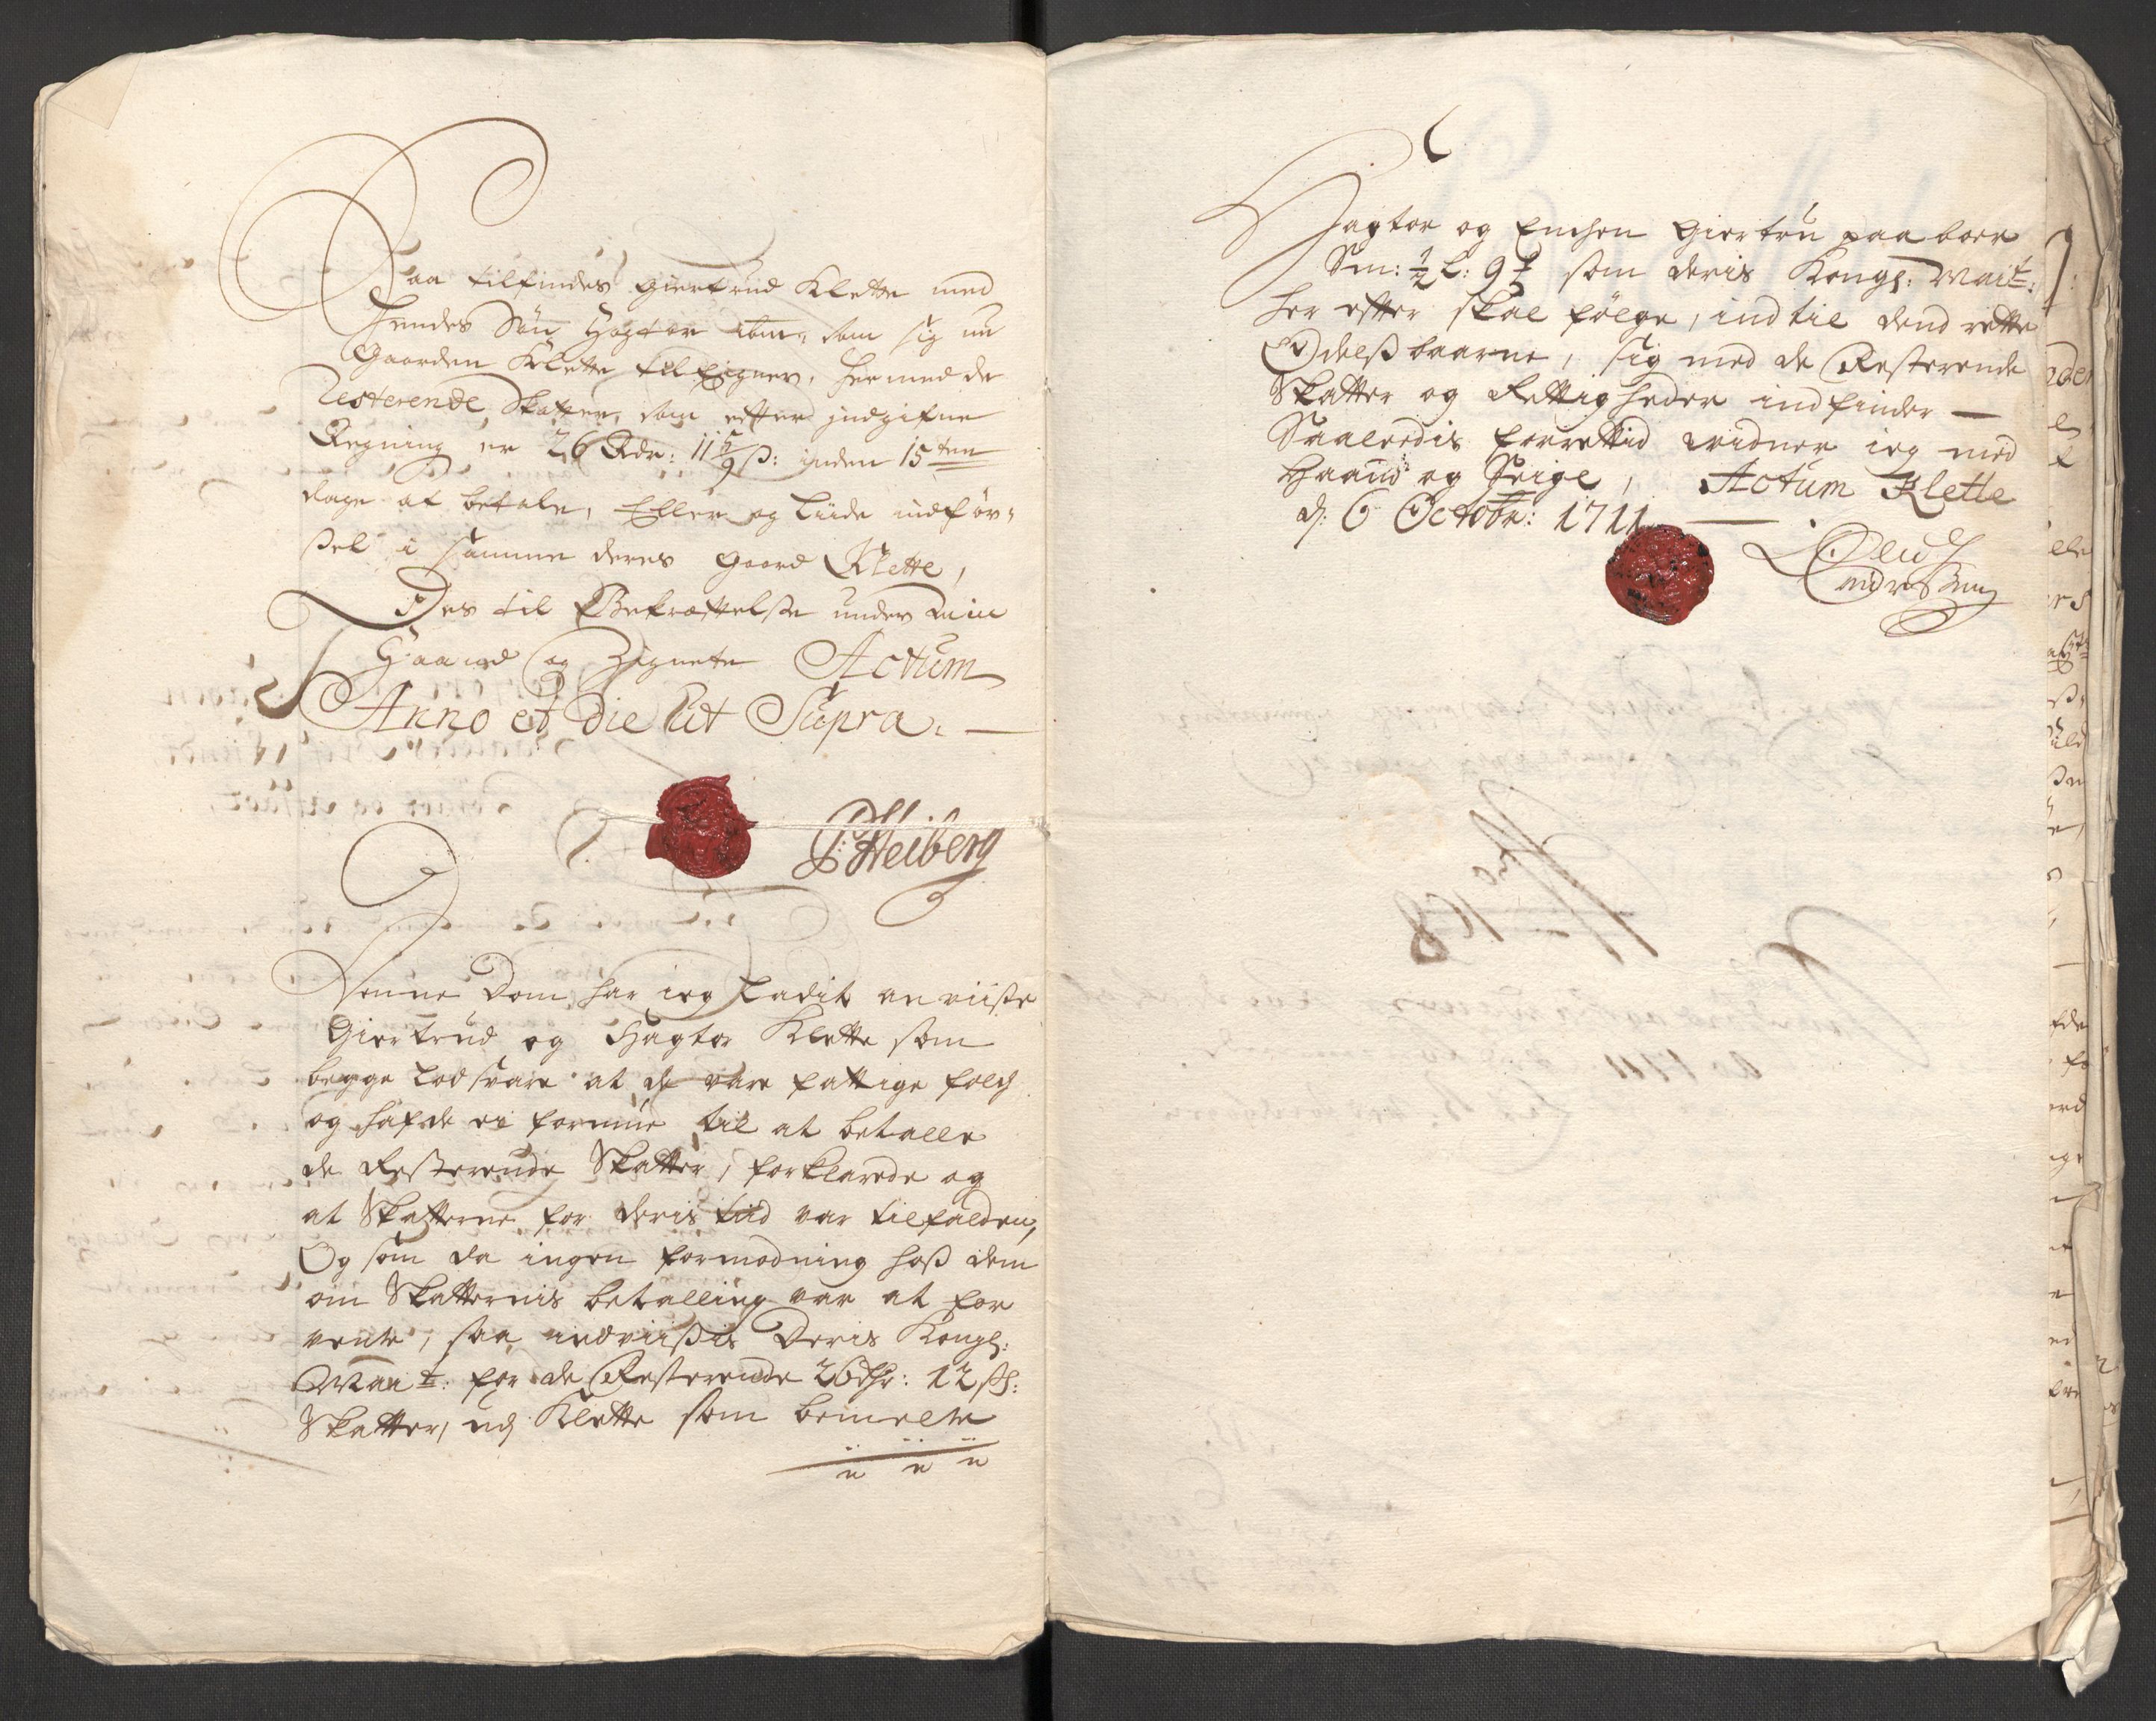 Saa tilfindes Giertrud Klette med
hendes Søn Hagtor ibm: som sig nu
Gaarden Klette tilEigner, hermed de
Resterende Skatter, som efter indgifne
Regning er 26 Rdr: 11 5/9 ß: inden 15ten
dage at betale, Eller og liide indfør-
ßel i samme deres gaard Klette,
Des til Bekræftelße under Min
Haand og Zignete Actum
Anno et Die Ut Supra.
P: Heiberg
Denne Dom har ieg Ladit anviiße
Giertrud og Hagtor Klette som
begge lod svare at de vare fattige folch
og hafde ei formue til at betalle
de Resterende Skatter, forklarede og
at Skatterne for deris tiid var tilfalden,
Og som da ingen formodning hoß dem
om Skatternis betalling var at for
vente, saa indviißis Deris Kongl:
Maÿt: for de Resterende 26 dhr: 12 sh:
Skatter, udj Klette som bemelte
Hagtor og Enchen Giertru paaboer
Sm: 1/2 L: 9 som deris Kongl: Mait:
her efter skal følge, indtil dend rette
Odelßbaarne, sig med de Resterende
Skatter og Rettigheder indfinder
Saaledis forrettid vidner ieg med
Haand og Seigl, Actum Klette
d: 6 Octobr: 1711
Oluf
Andersen